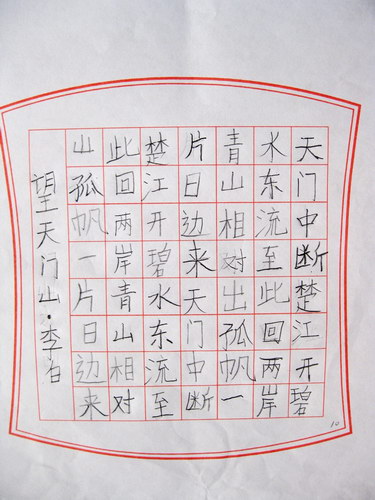 天门中断楚江开碧
水东流至此回两岸
青山相对出孤帆一
片日边来天门中断
楚江开碧水东流至
此回两岸青山相对
出孤帆一片日边来
望天门山·李白
10